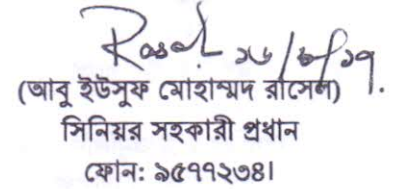 Rasel ১৬/৮/১৭.
(আবু ইউসুফ মোহাম্মদ রাসেল)
সিনিয়র সহকারী প্রধান
ফোন: ৯৫৭৭২৩৪।